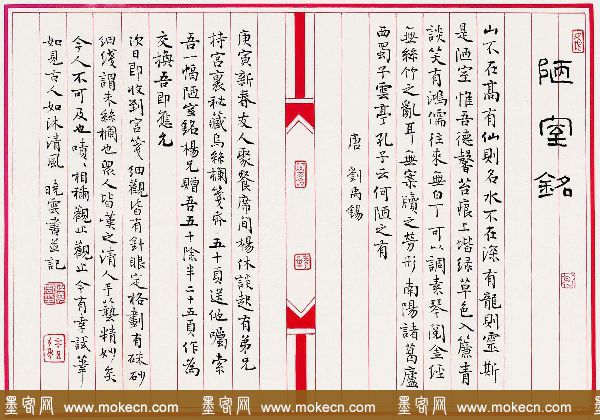 陋室銘
山不在高有仙則名水不在深有龍則靈斯
是陋室惟吾德馨苔痕上堦緑草色入簾青
談笑有鴻儒往來無白丁可以調素琴閲金經
無絲竹之亂耳無案牘之勞形南陽諸葛廬
西蜀子雲亭孔子云何陋之有
唐 劉禹錫
庚寅新春友人聚餐席間楊休談起有弟兄
持宫裏秘藏烏絲襴箋 五十頁送他囑索
吾一幅陋室銘楊兄贈吾五十除半二十五頁作為
交換吾即應允
次日即收到宫箋細觀皆有針眼定格劃有硃砂
細綫謂朱絲欄也衆人皆嘆之清人手藝精妙矣
今人不可及也嘖嘖相稱觀止觀止今有幸試筆
如見古人如沐清風 曉雲書並記
墨客网 www.mokecn.com 墨客网 www.mokecn.com 墨客网 www.mokecn.com